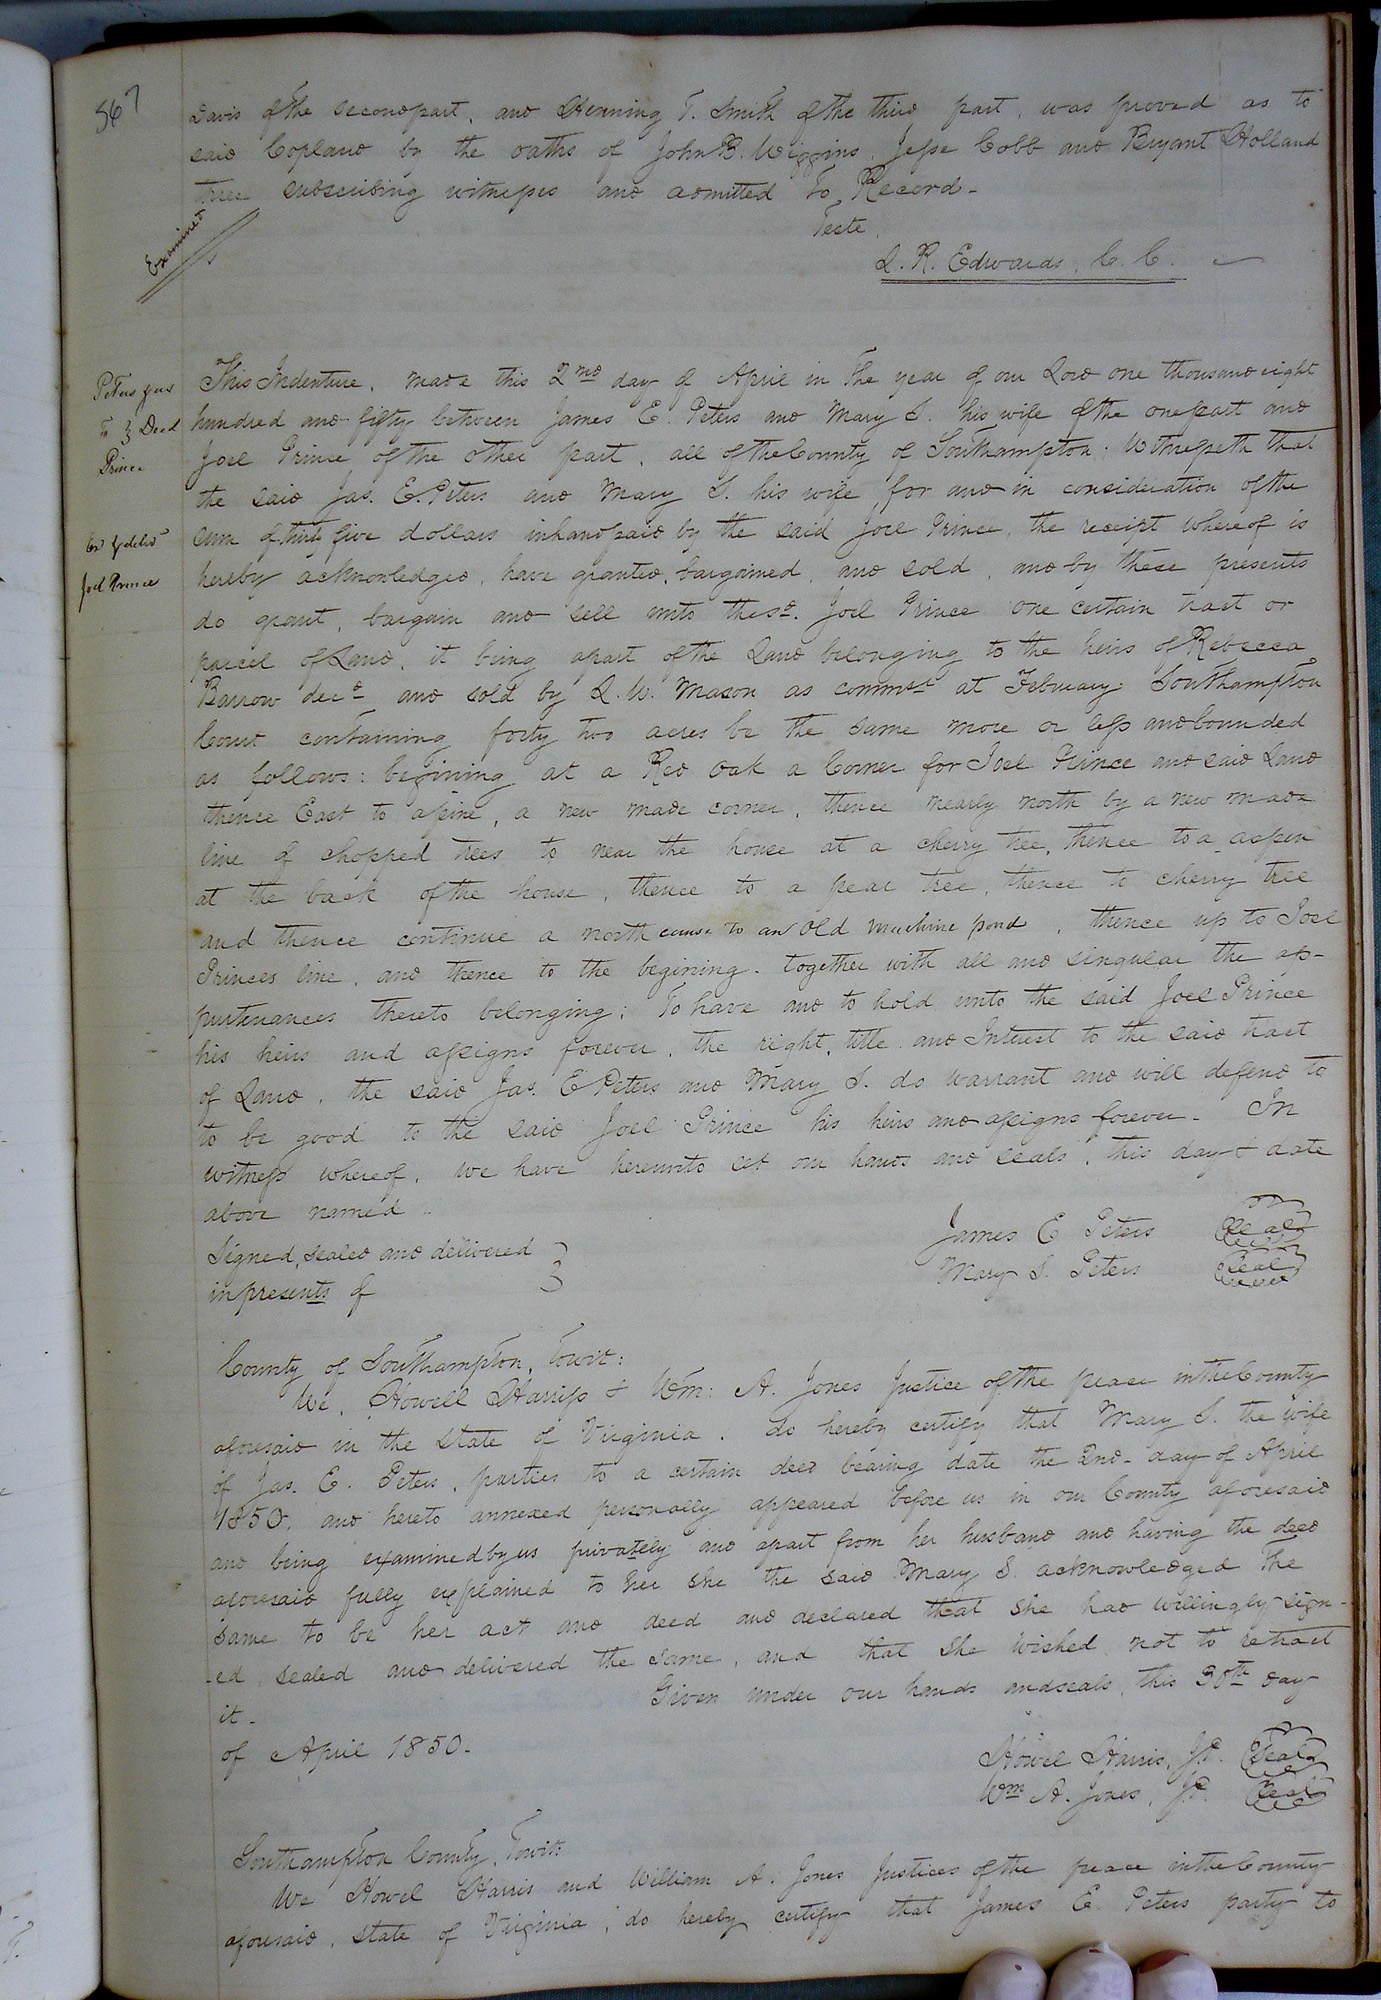 567
Davis of the second part, and Henning T. Smith of the third part, was proved as to
said Copland by the oaths of John B. Wiggins, Jesse Cobb and Bryant Holland
three subscribing witnesses and admitted to Record-
Teste,
L. R. Edwards, C. C.
Examined
Peters &ux
To } Deed
Prince
Joel Prince
This Indenture, made this 2nd day of April in the year of our Lord one thousand eight
hundred and fifty between James E. Peters and Mary S. his wife of the one part and
Joel Prince of the other part, all of the County of Southampton: Witnesseth that
the said Jas. E Peters and Mary S. his wife for and in consideration of the
sum of thirty five dollars in hand paid by the said Joel Prince, the receipt whereof is
hereby acknowledged, have granted, bargained, and sold, and by these presents
do grant, bargain and sell unto the sd. Joel Prince one certain tract or
parcel of Land, it being apart of the Land belonging to the heirs of Rebecca
Barrow decd and sold by L. W. Mason as commsr at February Southampton
Court containing forty two acres be the same more or less and bounded
as follows: begining at a Red Oak a Corner for Joel Prince and said Land
thence East to a pine, a new made corner, thence nearly north by a new made
line of chopped trees to near the house at a cherry tree, thence to a aspen
at the back of the house, thence to a pear tree, thence to cherry tree
and thence continue a north course to an old machine pond, thence up to Joel
Princes line, and thence to the begining. together with all and singular the ap-
purtenances thereto belonging; To have and to hold unto the said Joel Prince
his heirs and assigns forever, the right, title and Interest to the said tract
of Land, the said Jas. E Peters and Mary S. do warrant and will defend to
to be good to the said Joel Prince his heirs and assigns forever- In
witness whereof, we have hereunto set our hands and seals, this day & date
above named-
James E Peters Seal
Signed, sealed and delivered }
Mary S. Peters Seal
in presents of }
County of Southampton, Towit:
We, Howell Harriss & Wm: A. Jones Justice of the peace in the County
aforesaid in the State of Virginia, do hereby certify that Mary S. the wife
of Jas. E. Peters, parties to a certain deed bearing date the 2nd- day of April
1850, and hereto annexed personally appeared before us in our County aforesaid
and being examined by us privately and apart from her husband and having the deed
aforesaid fully explained to her she the said Mary S. acknowledged the
same to be her act and deed and declared that she had willingly sign-
-ed, sealed and delivered the same, and that she wished not to retract
it- Given under our hands and seals, this 30th day
of April 1850-
Howel Harris, J.P. Seal
Wm A. Jones, J.P. Seal
Southampton County, Towit:
We Howel Harris and William A. Jones Justices of the peace in the County
aforesaid, state of Virginia, do hereby certify that James E. Peters party to